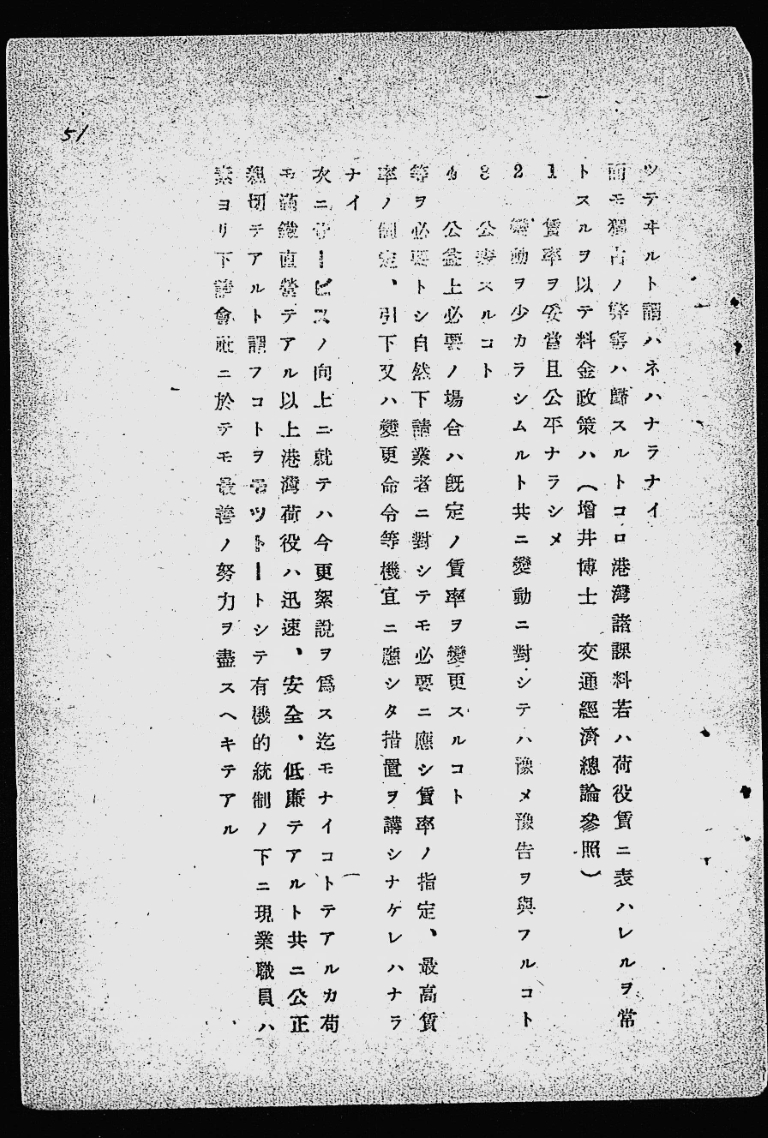 51
ツテヰルト謂ハネハナラナイ
而モ獨占ノ弊害ハ歸スルトコロ港灣諸課料若ハ荷役賃ニ表ハレルヲ常
トスルヲ以テ料金政策ハ(增井博士 交通經濟總論參照)
1 賃率ヲ妥當且公平ナラシメ
2 變動ヲ少カラシムルト共ニ變動ニ對シテハ豫メ豫告ヲ與フルコト
3 公表スルコト
4 公益上必要ノ場合ハ旣定ノ賃率ヲ變更スルコト
等ヲ必要トシ自然下請業者ニ對シテモ必要ニ應シ賃率ノ指定、最高賃
率ノ制定、引下又ハ變更命令等機宜ニ應シタ措置ヲ講シナケレハナラ
ナイ
次ニサービスノ向上ニ就テハ今更絮說ヲ爲ス迄モナイコトテアルカ苟
モ滿鐵直營テアル以上港灣荷役ハ迅速、安全、低廉テアルト共ニ公正
親切テアルト謂フコトヲモツトートシテ有機的統制ノ下ニ現業職員ハ
素ヨリ下請會社ニ於テモ最善ノ努力ヲ盡スヘキテアル